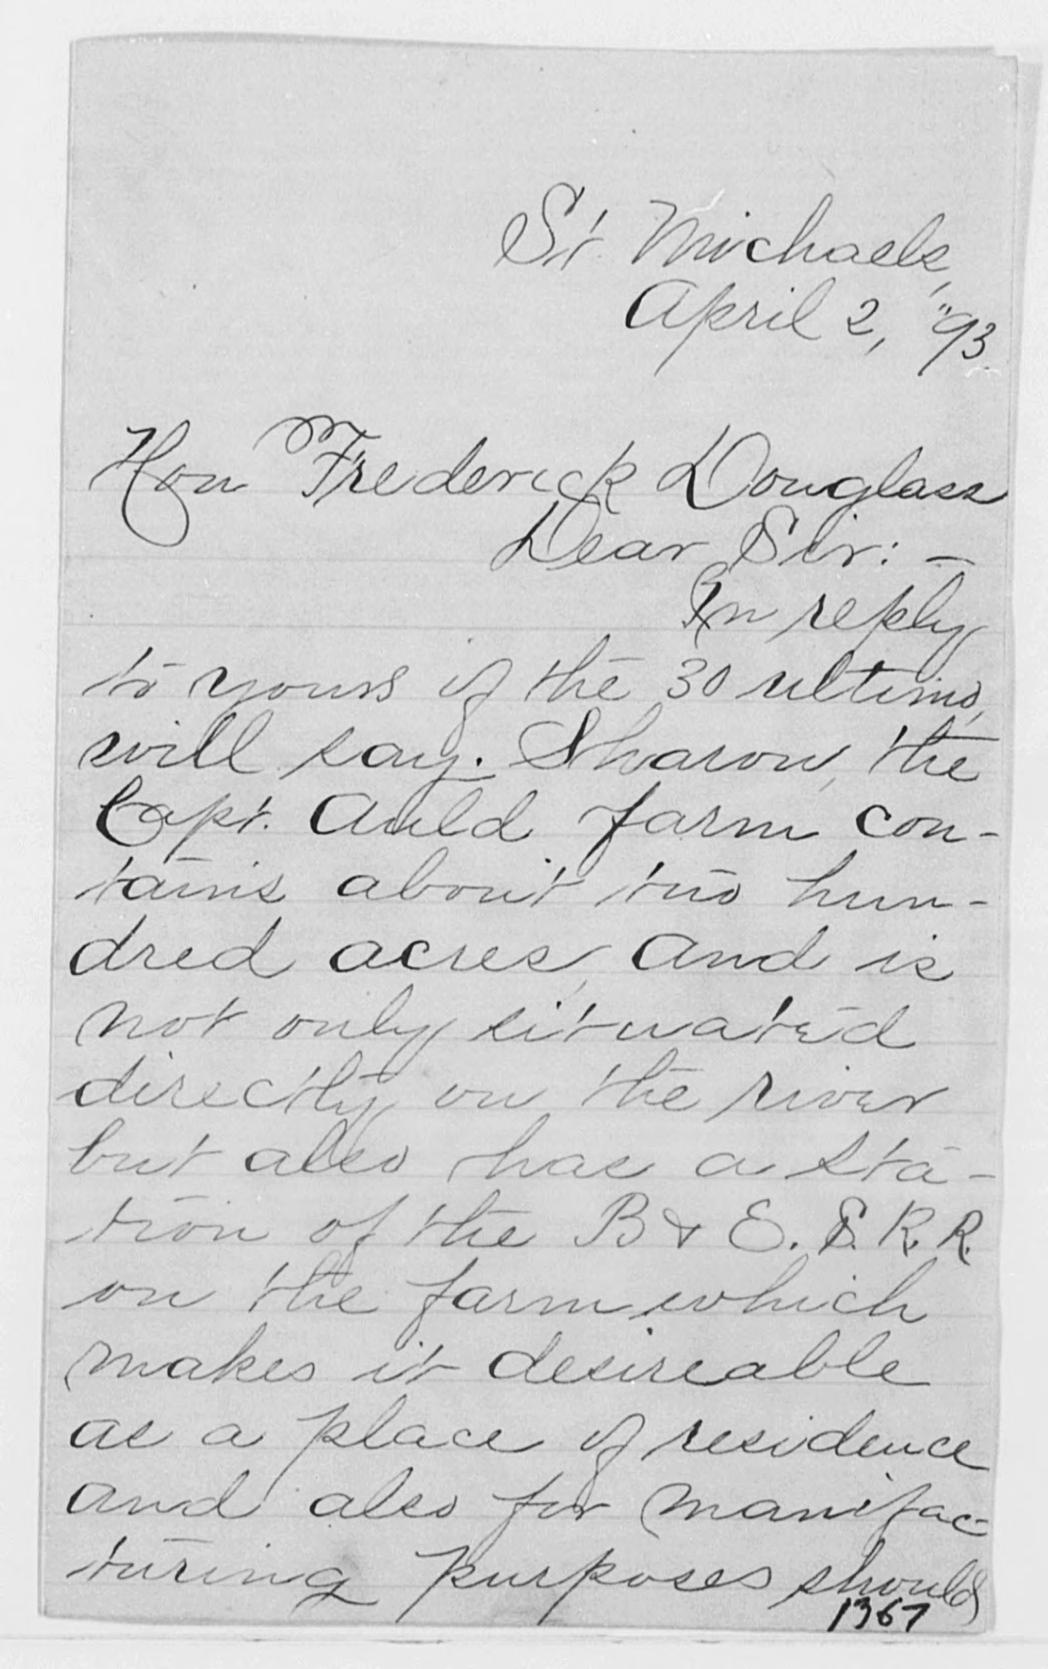 St. Michaels,
April 2, "93.
Hon Frederick Douglass
Dear Sir: —
In reply
to yours of the 30 ultimo,
will say. Sharon, the
Capt. Auld farm con-
tains about two hun-
dred acres, and is
not only situated
directly on the river
but also has a sta-
tion of the B & E. S. R. R.
on the farm which
makes it desireable
as a place of residence
and also for manifac-
turing purposes should
1367